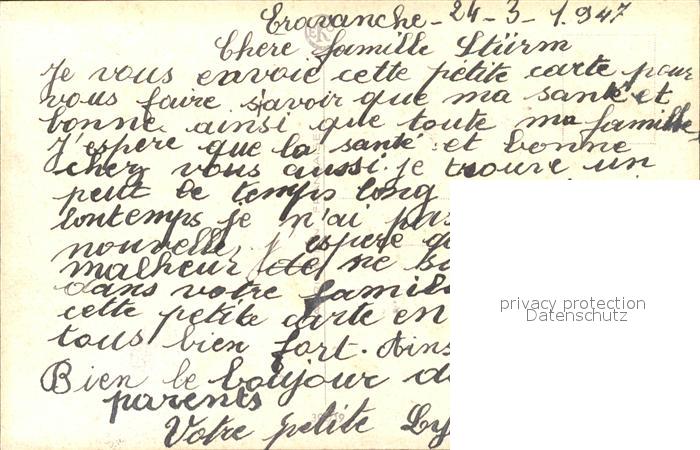 Eravanche - 24 - 3 - 1.947
Chere famille Stürm
Je vous envoie cette petite carte pour
vous faire savoir que ma santé et
bonne. ainsi que toute ma famille.
J'espere que la santé et bonne
chez vous aussi. je trouve un
peut le temps long
lontemps je n'ai pas
nouvelle, j'espere
malheur de ne
dans votre famil
cette petite carte en
tous bien fort. Ains
Bien le boujour de
parents
Votre petite Ly
privacy protection
Datenschutz